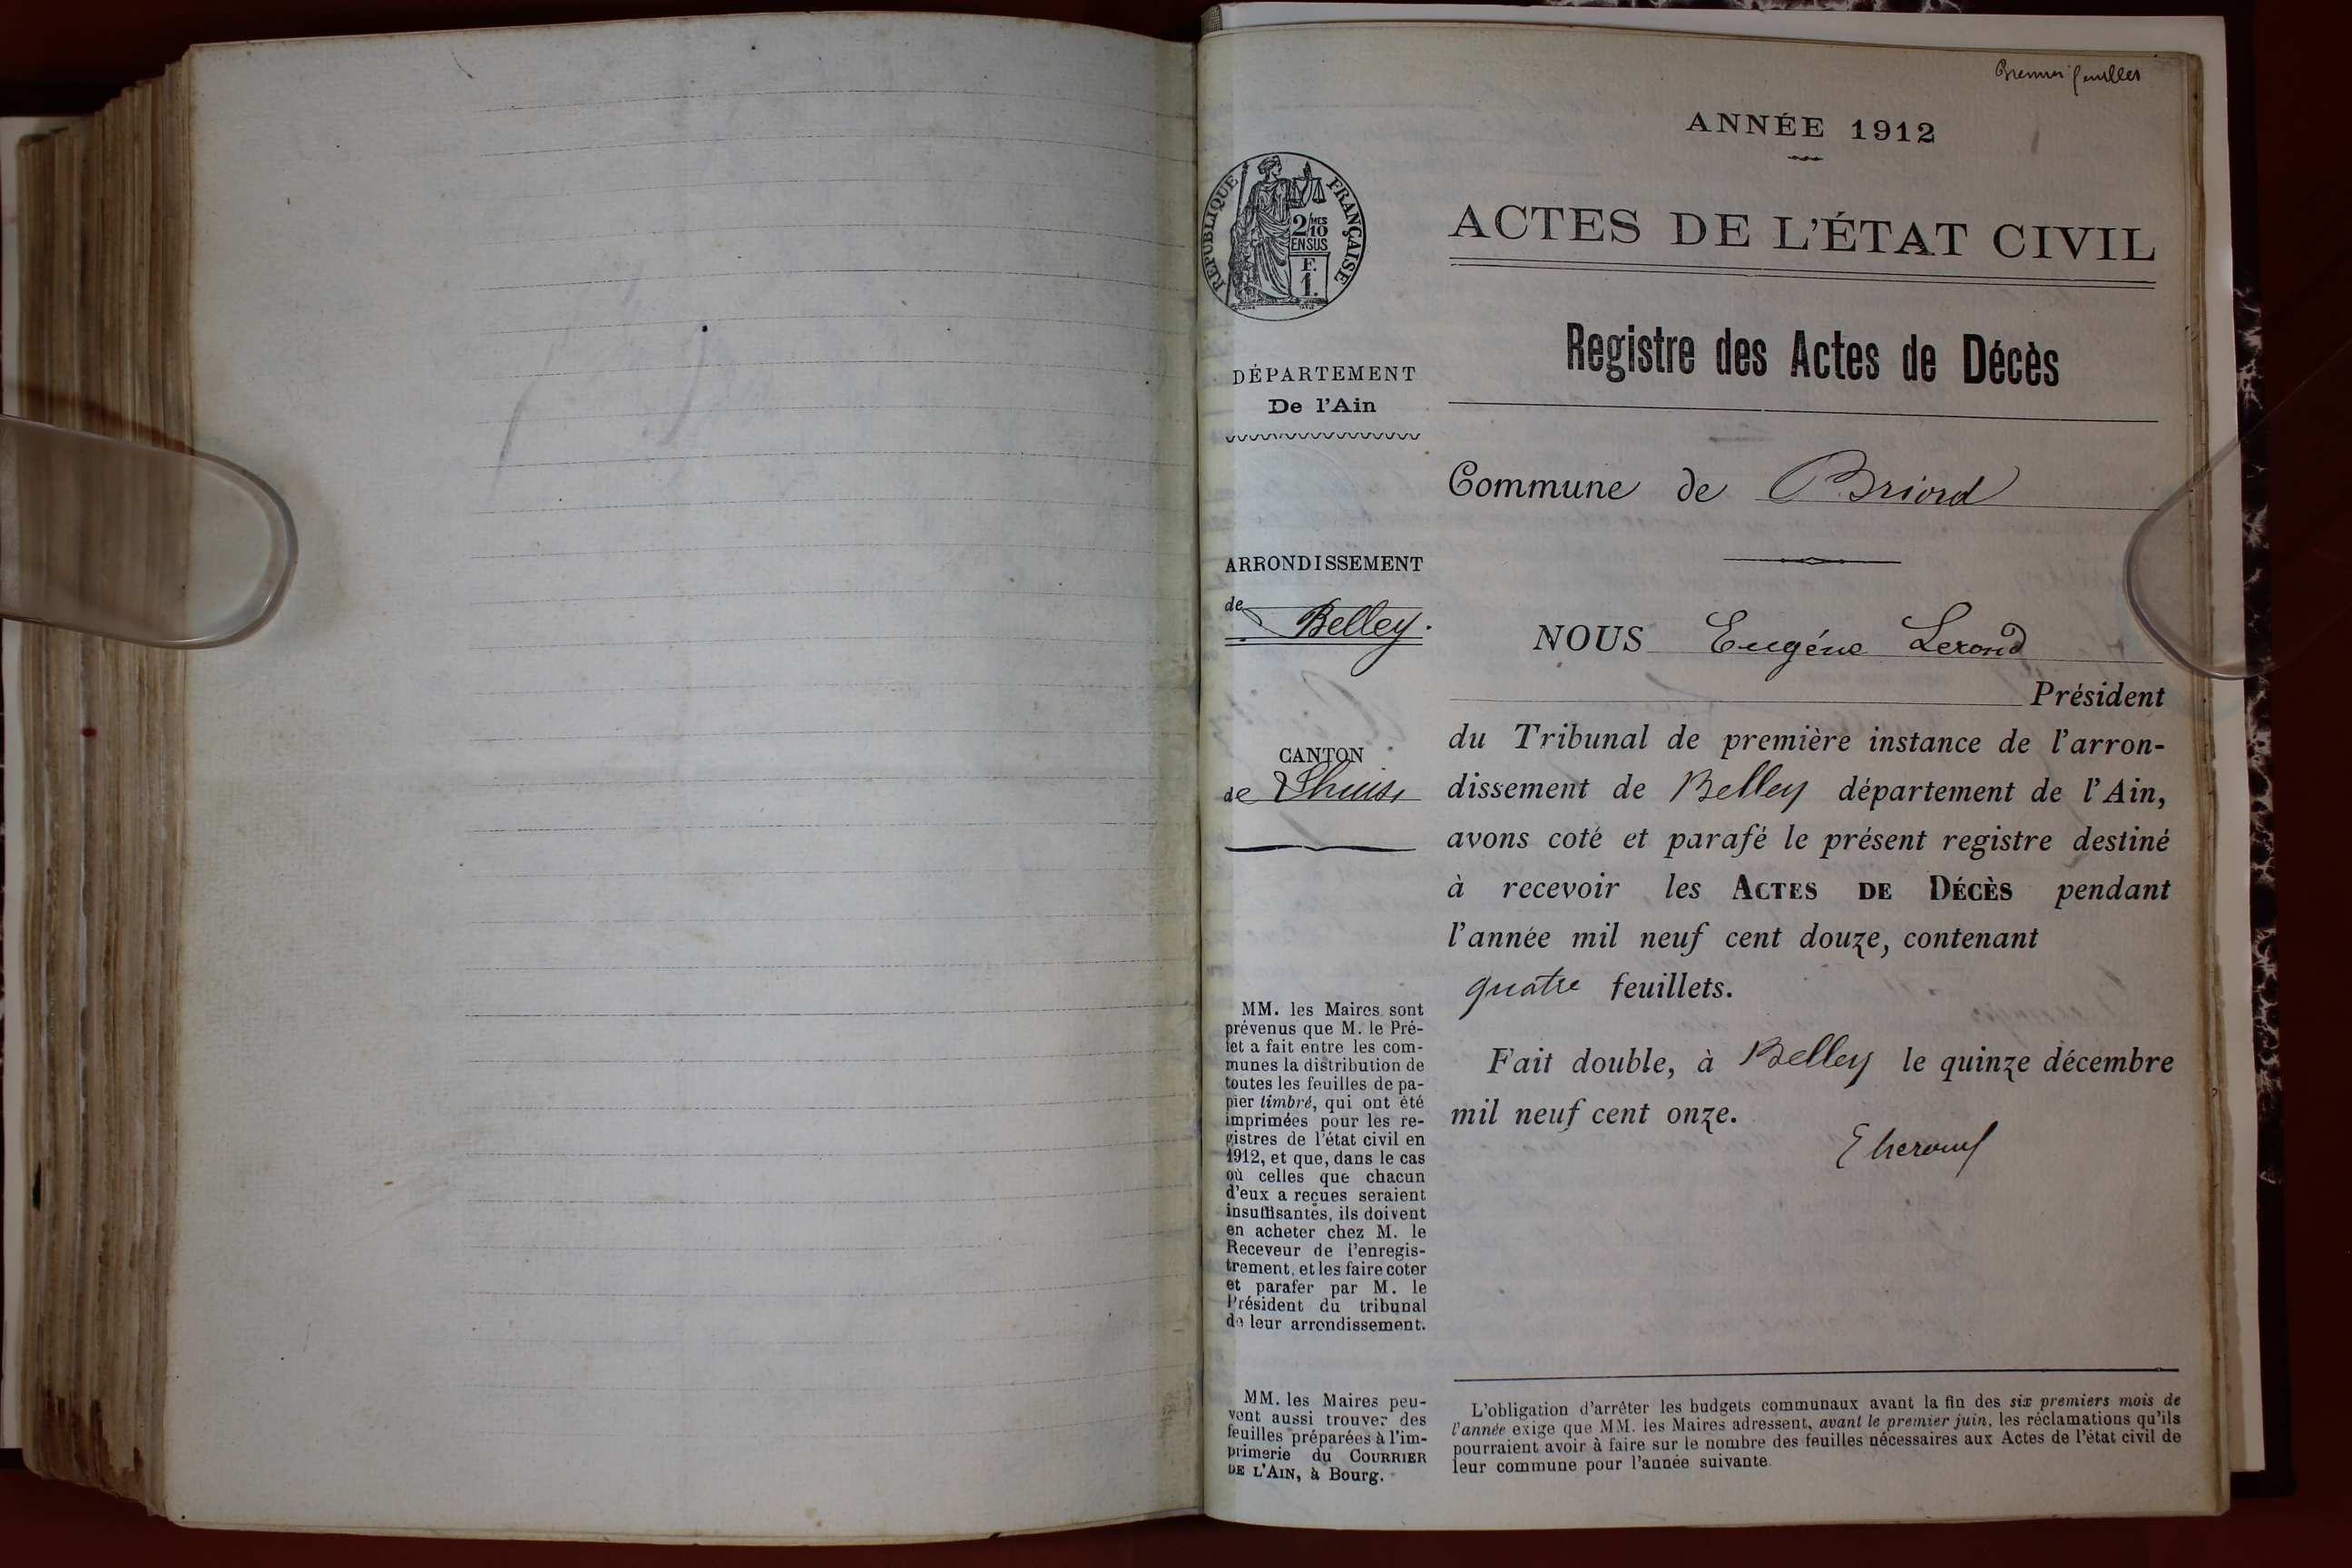 Premier feuillet
ANNÉE 1912
RÉPUBLIQUE FRANÇAISE
2/MES
10
EN SUS
F.
1.
ACTES DE L'ÉTAT CIVIL
Registre des Actes de Décès
DÉPARTEMENT
De l'Ain
Commune de Briord
ARRONDISSEMENT
de Belley.
CANTON
de Lhuis
NOUS Eugéne Lerond
Président
du Tribunal de première instance de l'arron-
dissement de Belley département de l'Ain,
avons coté et parafé le présent registre destiné
à recevoir les ACTES DE DÉCÈS pendant
l'année mil neuf cent douze, contenant
quatre feuillets.
Fait double, à Belley le quinze décembre
mil neuf cent onze.
MM. les Maires sont
prévenus que M. le Pré-
fet a fait entre les com-
munes la distribution de
toutes les feuilles de pa-
pier timbré, qui ont été
imprimées pour les re-
gistres de l'état civil en
1912, et que, dans le cas
où celles que chacun
d'eux a reçues seraient
insuffisantes, ils doivent
en acheter chez M. le
Receveur de l'enregis-
trement, et les faire coter
et parafer par M. le
Président du tribunal
de leur arrondissement.
MM. les Maires peu-
vent aussi trouver des
feuilles préparées à l'im-
primerie du COURRIER
DE L'AIN, à Bourg.
L'obligation d'arrêter les budgets communaux avant la fin des six premiers mois de
l'année exige que MM. les Maires adressent, avant le premier juin, les réclamations qu'ils
pourraient avoir à faire sur le nombre des feuilles nécessaires aux Actes de l'état civil de
leur commune pour l'année suivante.